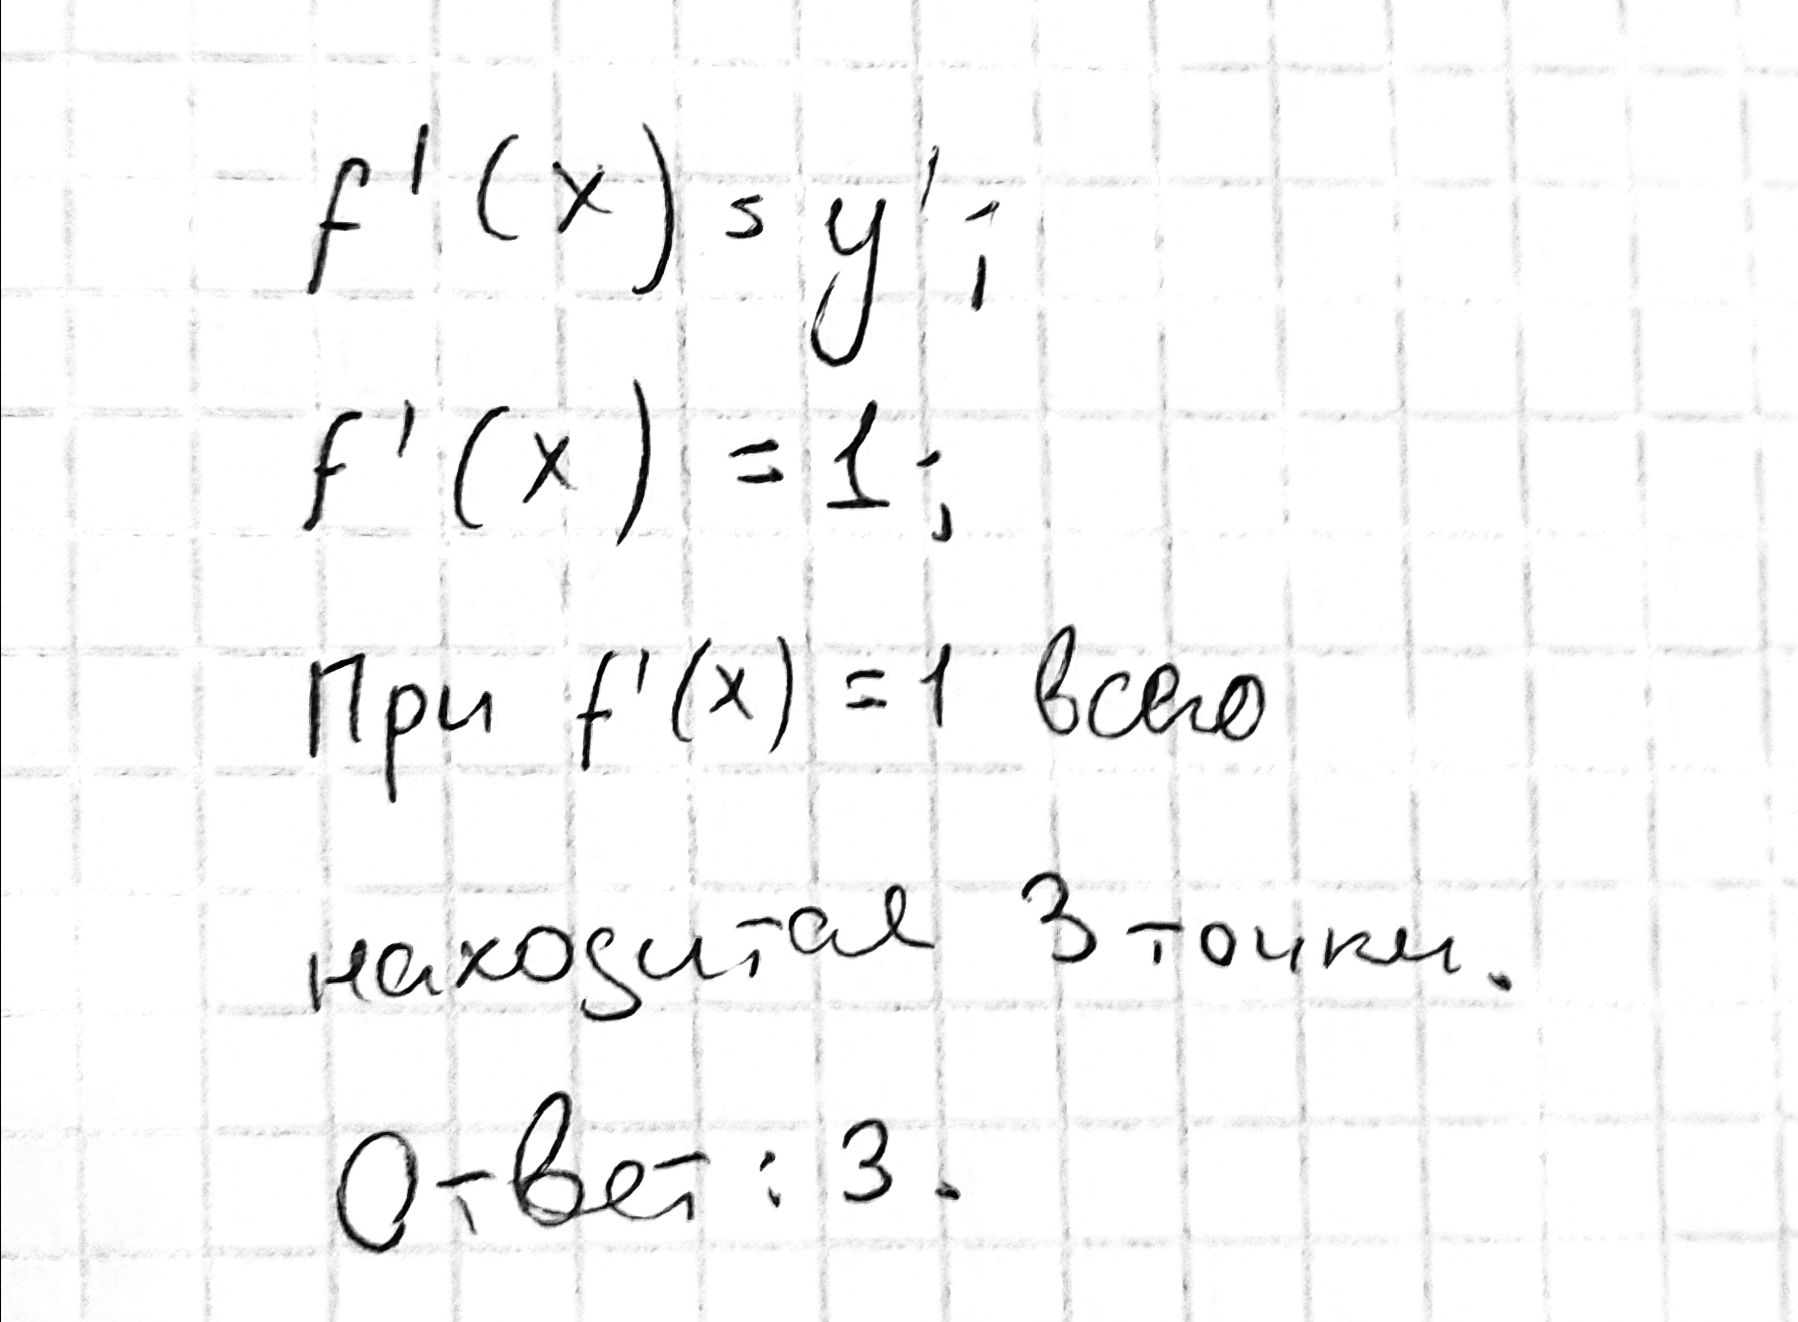 f'(x) = y';
f'(x) = 1;
При f'(x) = 1 всего
находится 3 точки.
Ответ: 3.